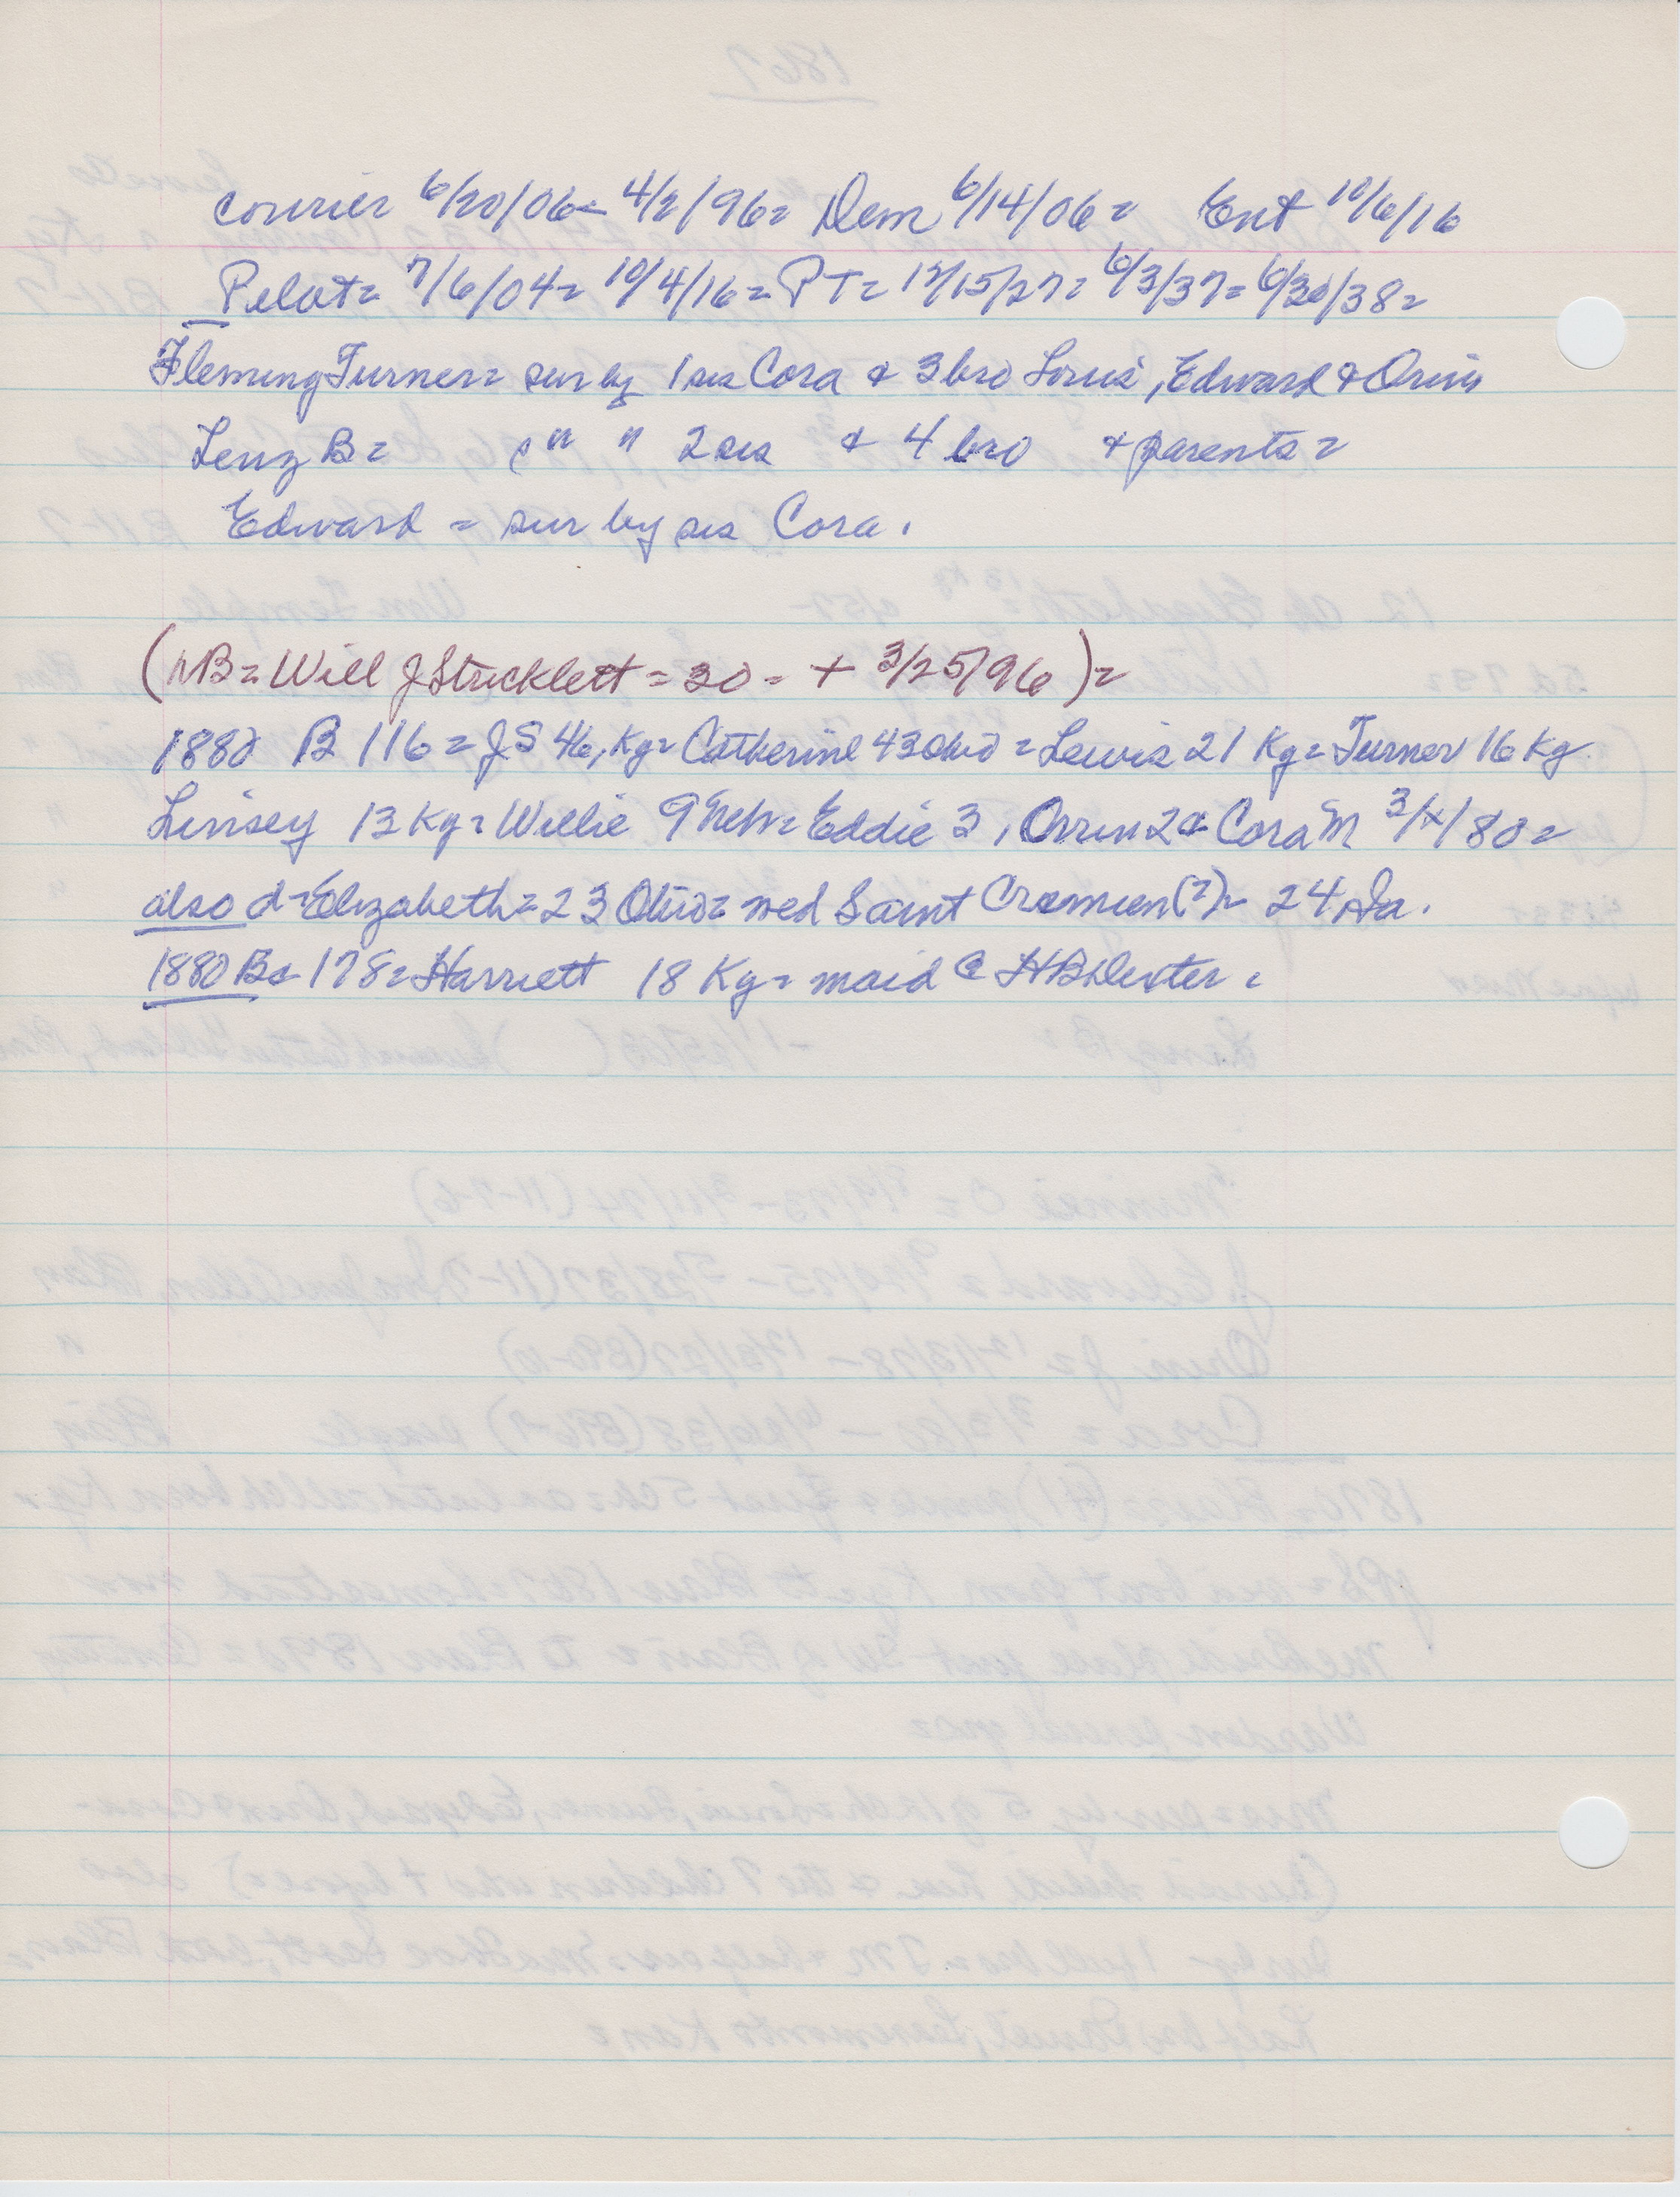 Courier 6/20/06 - 4/2/96 = Dem 6/14/06 = Ent 10/6/16
Pilot = 7/6/04 = 10/4/16 = PT = 12/15/27 = 6/3/37 = 6/30/38 =
Fleming Turner = sur by 1 sis Cora & 3 bro Louis, Edward & Orin
Lenz B = " " 2 sis & 4 bro & parents =
Edward = sur by sis Cora.
(NB = Will J Stricklett = 20 = + 3/25/96) =
1880 B 116 = JS 46, Ky = Catherine 43 Ohio = Lewis 21 Ky = Turner 16 Ky
Linsey 13 Ky = Willie 9 Neb = Eddie 3, Orrin 2 & Cora M 3/x/80 =
also d = Elizabeth = 23 Ohio = wed Saint (?) = 24 Ia.
1880 Bs 178 = Harriett 18 Ky = maid @ H B Dexter =